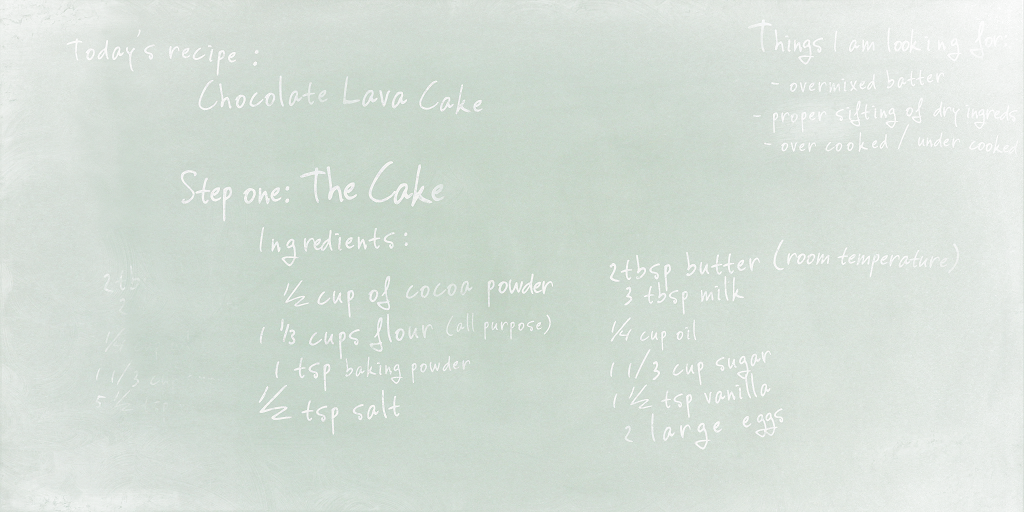 Today's recipe :
Chocolate Lava Cake
Things I am looking for:
- overmixed batter
- proper sifting of dry ingreds
- over cooked / under cooked
Step one: The Cake
Ingredients:
½ cup of cocoa powder
1 ⅓ cups flour (all purpose)
1 tsp baking powder
½ tsp salt
2 tbsp butter (room temperature)
3 tbsp milk
¼ cup oil
1 1/3 cup sugar
1 ½ tsp vanilla
2 large eggs
2
1 1/3